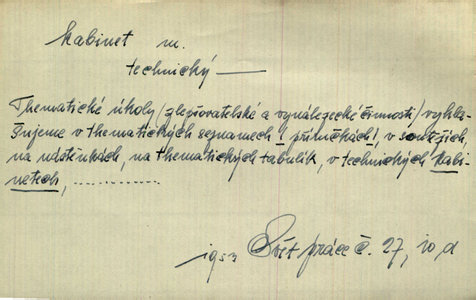 kabinet m.
technický —
Thematické úkoly /zlepšovatelské a vynálezecké činnosti/ vyhla-
šujeme v thematických seznamech / příručkách /, v soutěžích,
na nástěnkách, na thematických tabulích, v technických kabi-
netech, ..............
1953 Svět práce č. 27, 10, d